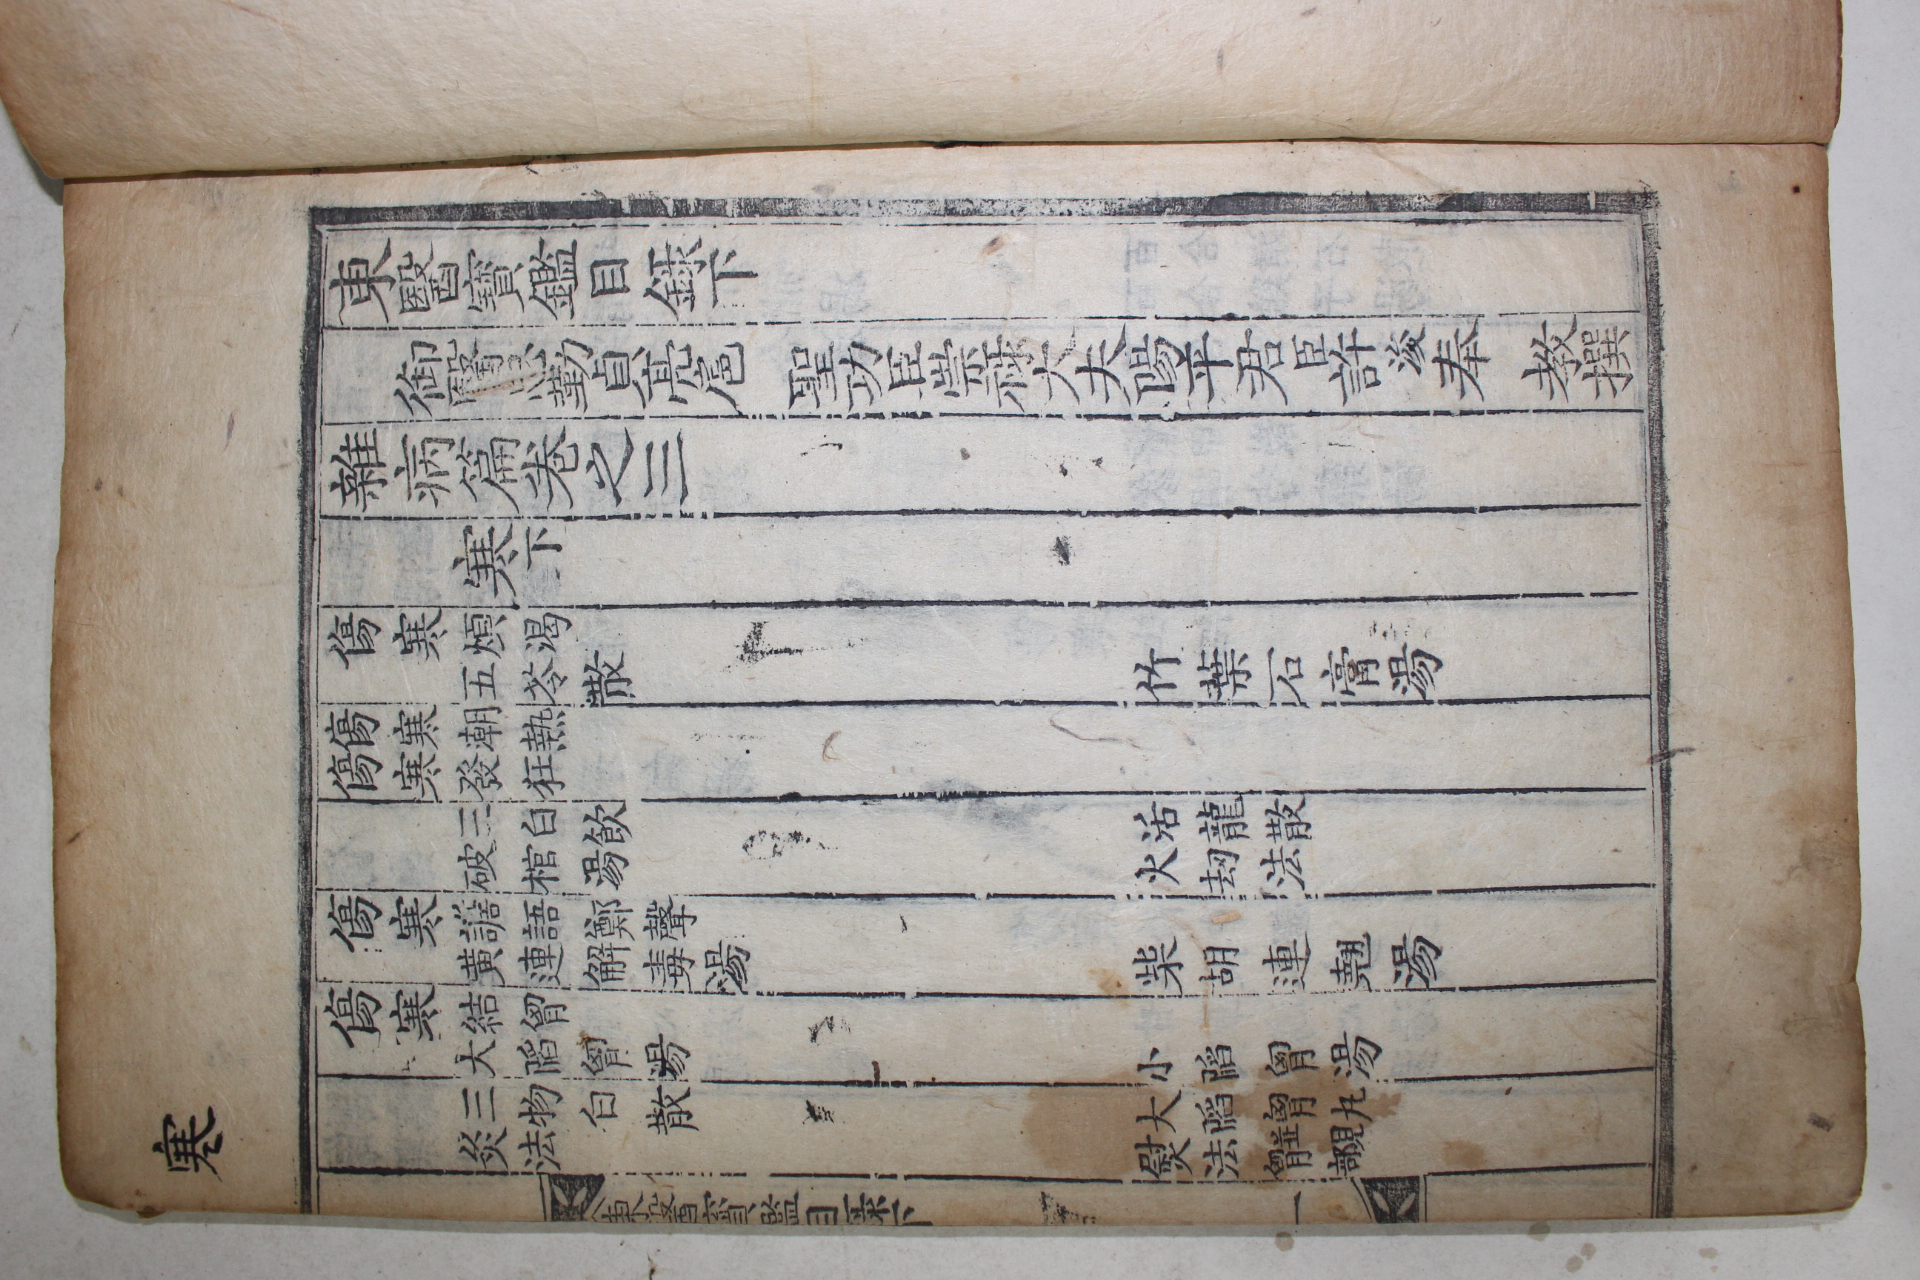 寒
東醫寶鑑目錄下
御醫忠勤貞亮扈 聖功臣崇祿大夫陽平君臣許浚奉 教撰
雜病篇卷之三
寒下
傷寒煩渴
五苓散 竹葉石膏湯
傷寒潮熱
傷寒發狂
三白飮 活龍散
破棺湯 火刼法
傷寒譫語鄭聲
黃連解毒湯 柴胡連翹湯
傷寒結胷
大陷胷湯 小陷胷湯
三物白散 大陷胷丸
灸法 熨法並見胷部
東醫寶鑑目錄下 一